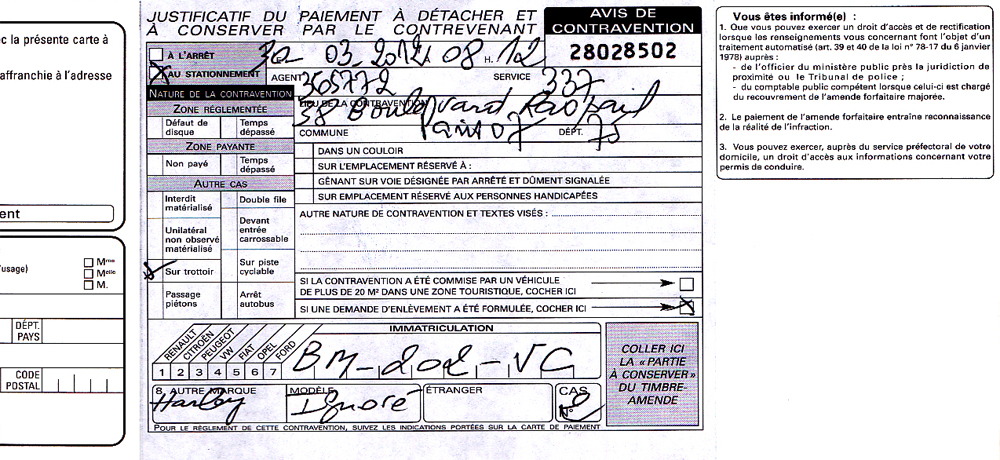 c la présente carte à
affranchie à l'adresse
ent
l'usage)
Mme
Melle
M.
DÉPT.
PAYS
CODE
POSTAL
JUSTIFICATIF DU PAIEMENT À DÉTACHER ET
À CONSERVER PAR LE CONTREVENANT
AVIS DE
CONTRAVENTION
28028502
À L'ARRÊT
03 2012 À 08 H. 12
AU STATIONNEMENT
AGENT 365772 SERVICE 337
NATURE DE LA CONTRAVENTION
LIEU DE LA CONTRAVENTION
38 Boulevard Raspail
COMMUNE Paris 07 DÉPT. 75
ZONE RÉGLEMENTÉE
Défaut de disque
Temps dépassé
ZONE PAYANTE
Non payé
Temps dépassé
AUTRE CAS
Interdit matérialisé
Double file
Unilatéral non observé matérialisé
Devant entrée carrossable
Sur trottoir
Sur piste cyclable
Passage piétons
Arrêt autobus
DANS UN COULOIR
SUR L'EMPLACEMENT RÉSERVÉ À :
GÊNANT SUR VOIE DÉSIGNÉE PAR ARRÊTÉ ET DÛMENT SIGNALÉE
SUR EMPLACEMENT RÉSERVÉ AUX PERSONNES HANDICAPÉES
AUTRE NATURE DE CONTRAVENTION ET TEXTES VISÉS :
SI LA CONTRAVENTION A ÉTÉ COMMISE PAR UN VÉHICULE
DE PLUS DE 20 M² DANS UNE ZONE TOURISTIQUE, COCHER ICI
SI UNE DEMANDE D'ENLÈVEMENT A ÉTÉ FORMULÉE, COCHER ICI
RENAULT CITROËN PEUGEOT VW FIAT OPEL FORD
1 2 3 4 5 6 7
IMMATRICULATION
BM-202-VC
8. AUTRE MARQUE
Harley
MODÈLE
Ignoré
ÉTRANGER
CAS
N° 2
COLLER ICI
LA « PARTIE
À CONSERVER »
DU TIMBRE-
AMENDE
POUR LE RÈGLEMENT DE CETTE CONTRAVENTION, SUIVEZ LES INDICATIONS PORTÉES SUR LA CARTE DE PAIEMENT
Vous êtes informé(e) :
1. Que vous pouvez exercer un droit d'accès et de rectification
lorsque les renseignements vous concernant font l'objet d'un
traitement automatisé (art. 39 et 40 de la loi n° 78-17 du 6 janvier
1978) auprès :
- de l'officier du ministère public près la juridiction de
proximité ou le Tribunal de police ;
- du comptable public compétent lorsque celui-ci est chargé
du recouvrement de l'amende forfaitaire majorée.
2. Le paiement de l'amende forfaitaire entraîne reconnaissance
de la réalité de l'infraction.
3. Vous pouvez exercer, auprès du service préfectoral de votre
domicile, un droit d'accès aux informations concernant votre
permis de conduire.